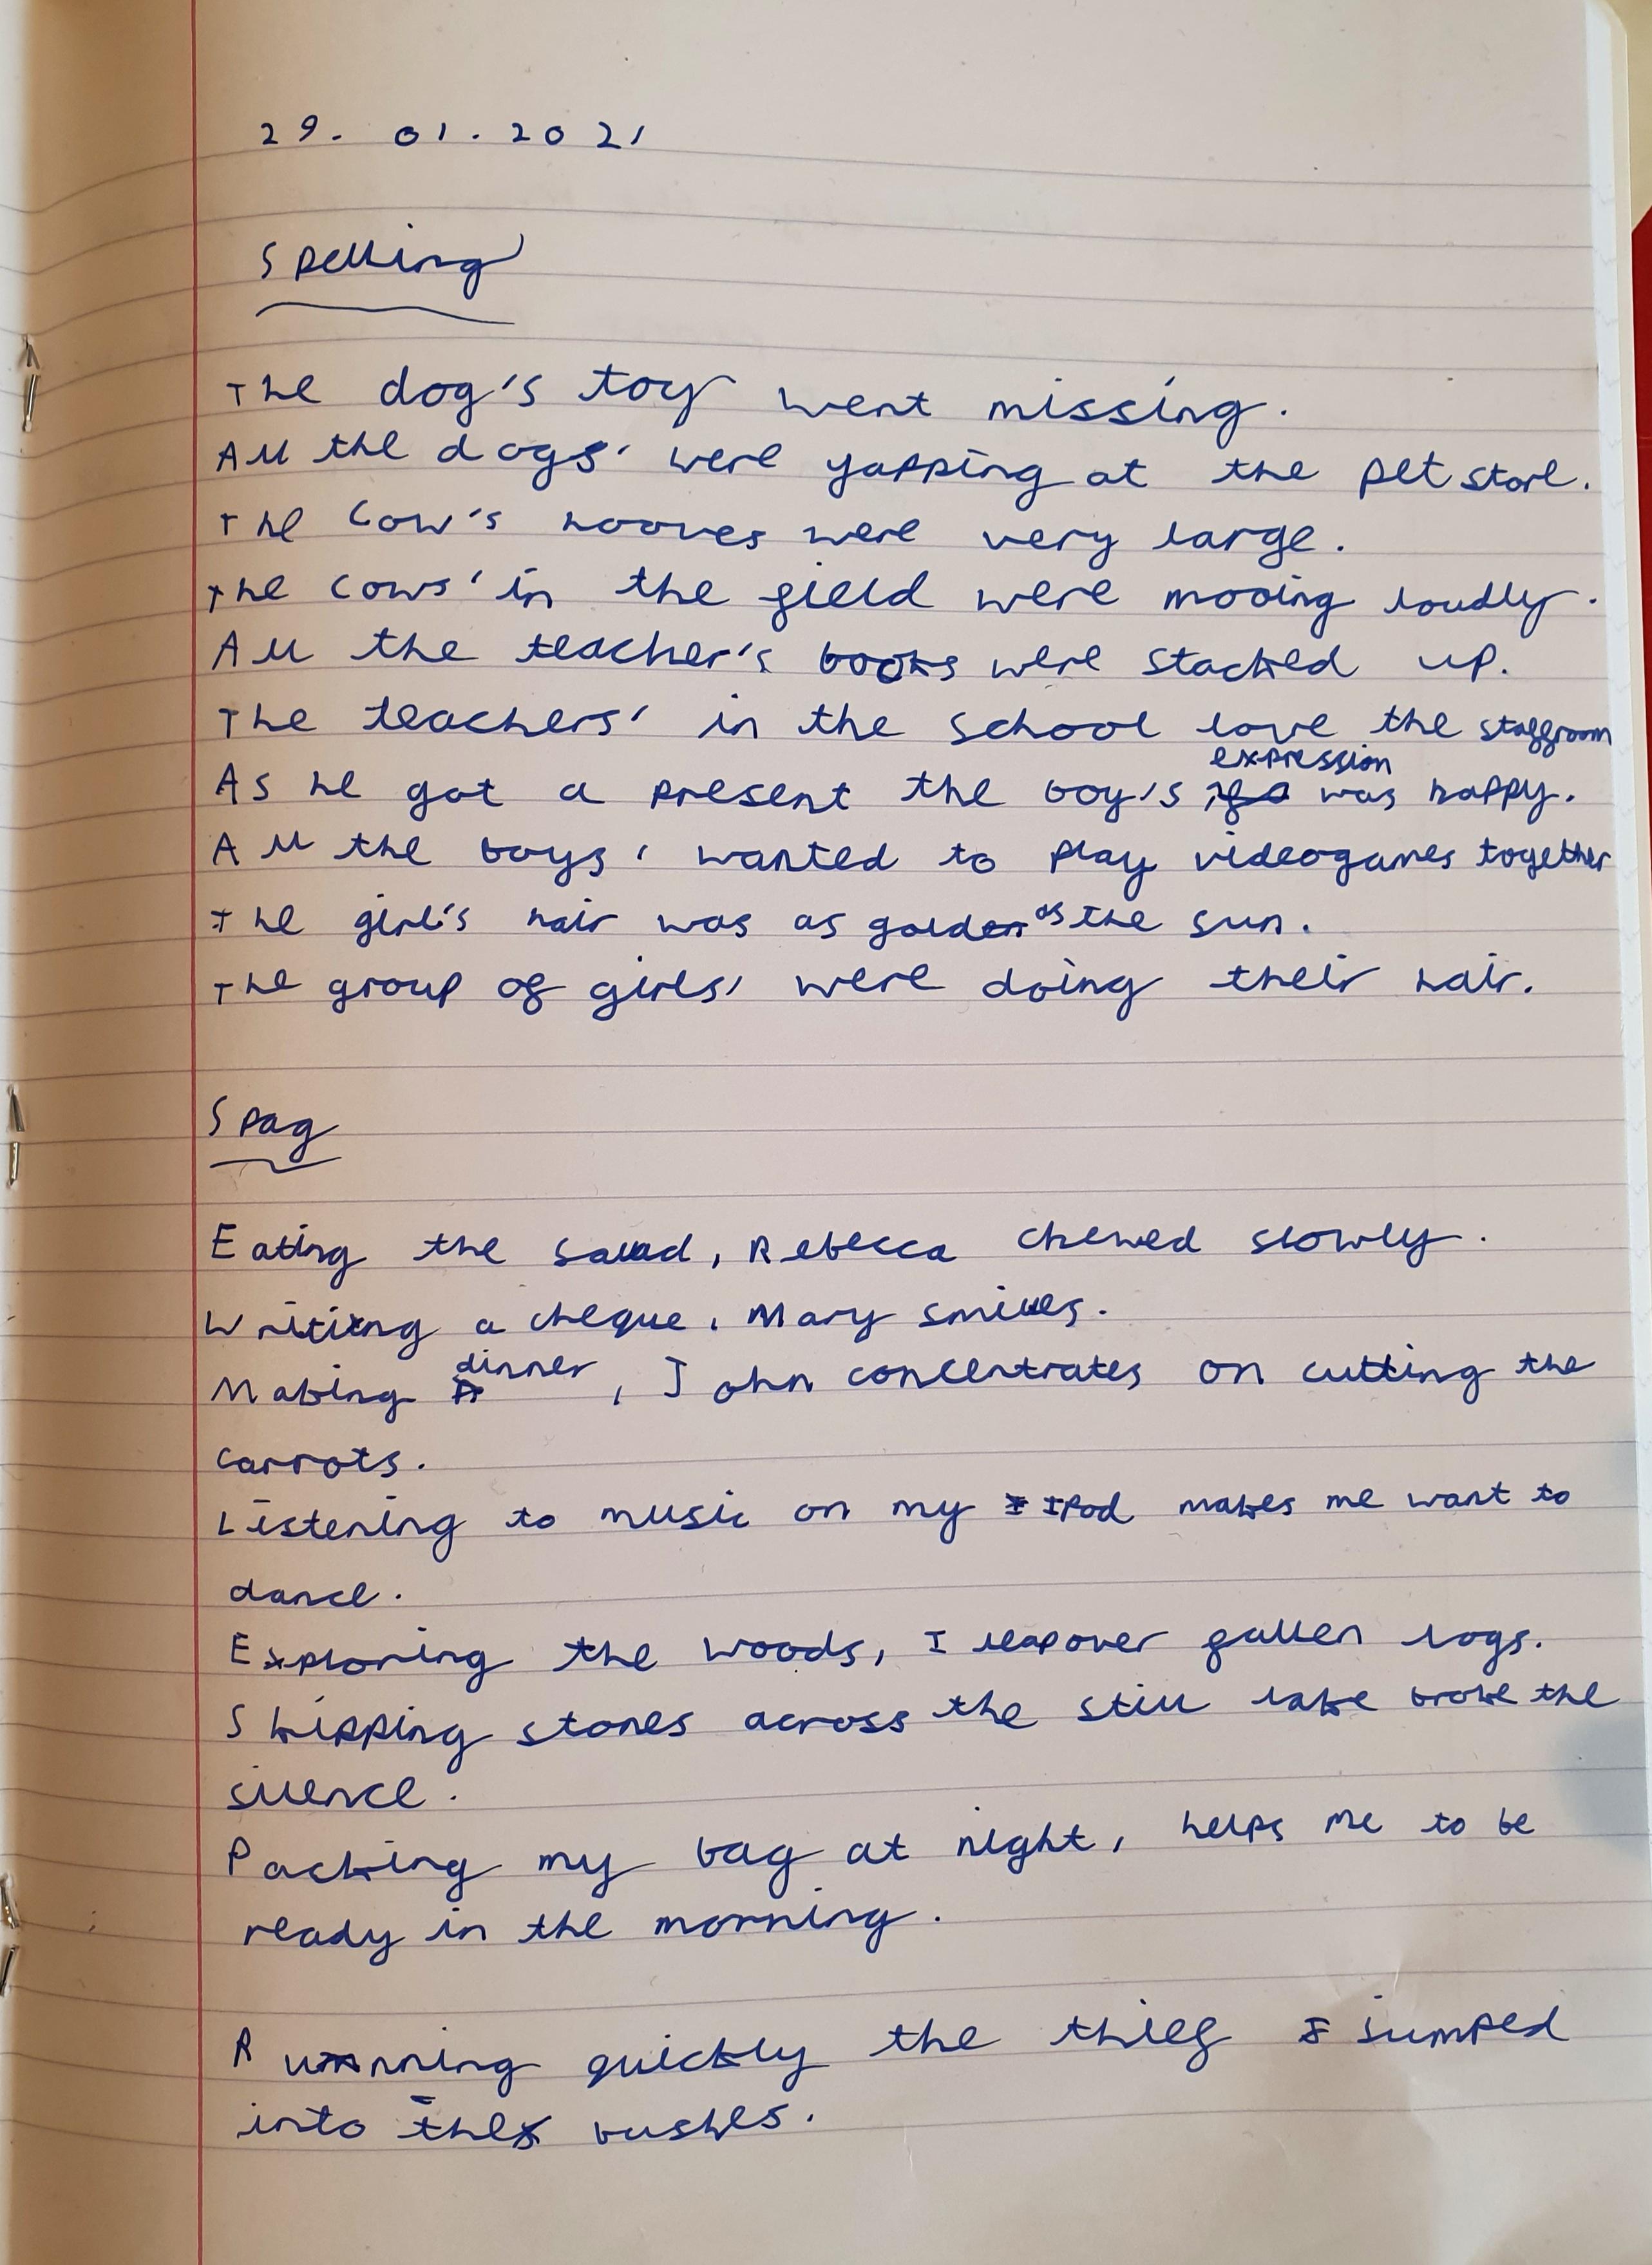 29. 01. 2021
Spelling
The dog's toy went missing.
All the dogs' were yapping at the pet store.
The cow's hooves were very large.
The cows' in the field were mooing loudly.
All the teacher's books were stacked up.
The teachers' in the school love the staffroom
As he got a present the boy's expression was happy.
All the boys' wanted to play videogames together
The girl's hair was as golden as the sun.
The group of girls' were doing their hair.
Spag
Eating the salad, Rebecca chewed slowly.
Writing a cheque, Mary smiles.
Making dinner, John concentrates on cutting the
carrots.
Listening to music on my IPod makes me want to
dance.
Exploring the woods, I leap over fallen logs.
Skipping stones across the still lake broke the
silence.
Packing my bag at night, helps me to be
ready in the morning.
Running quickly the thief jumped
into the bushes.